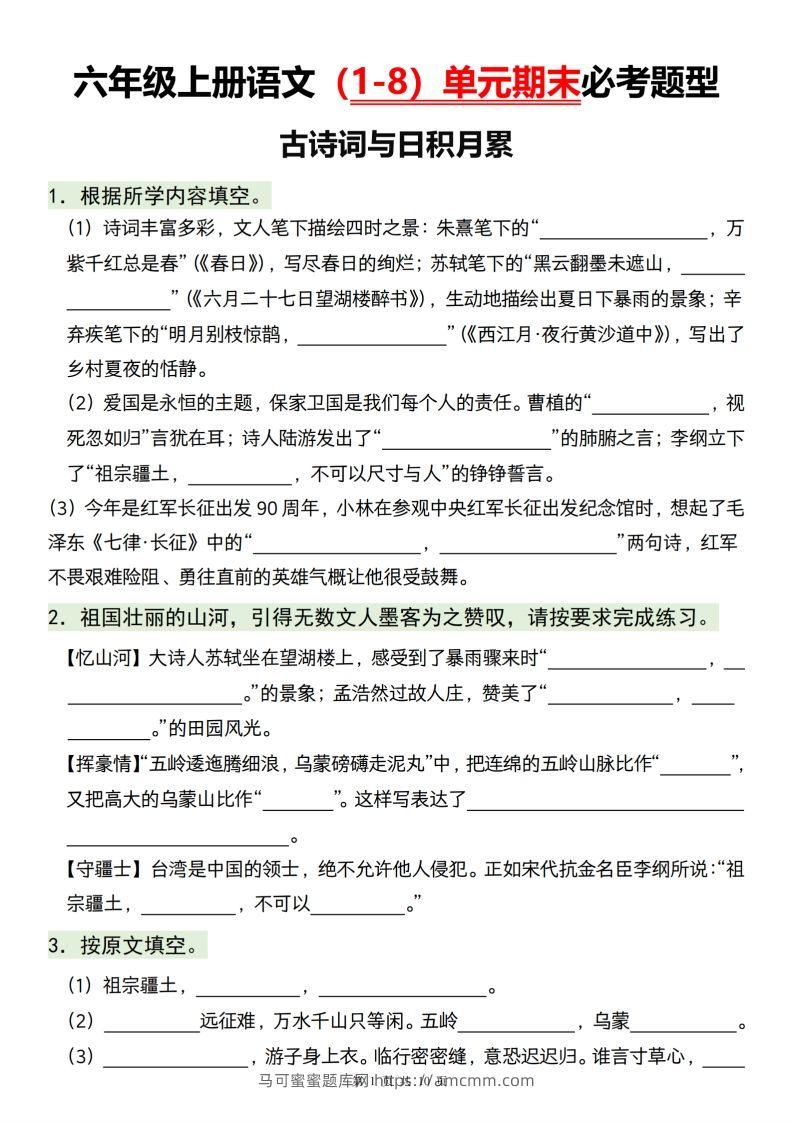 六年级上册语文（1-8）单元期末必考题型
古诗词与日积月累
1．根据所学内容填空。
（1）诗词丰富多彩，文人笔下描绘四时之景：朱熹笔下的“________________，万
紫千红总是春”（《春日》），写尽春日的绚烂；苏轼笔下的“黑云翻墨未遮山，______
__________”（《六月二十七日望湖楼醉书》），生动地描绘出夏日下暴雨的景象；辛
弃疾笔下的“明月别枝惊鹊，______________”（《西江月·夜行黄沙道中》），写出了
乡村夏夜的恬静。
（2）爱国是永恒的主题，保家卫国是我们每个人的责任。曹植的“___________，视
死忽如归”言犹在耳；诗人陆游发出了“________________”的肺腑之言；李纲立下
了“祖宗疆土，__________，不可以尺寸与人”的铮铮誓言。
（3）今年是红军长征出发 90 周年，小林在参观中央红军长征出发纪念馆时，想起了毛
泽东《七律·长征》中的“________________，_________________”两句诗，红军
不畏艰难险阻、勇往直前的英雄气概让他很受鼓舞。
2．祖国壮丽的山河，引得无数文人墨客为之赞叹，请按要求完成练习。
【忆山河】大诗人苏轼坐在望湖楼上，感受到了暴雨骤来时“_______________，__
_________________。”的景象；孟浩然过故人庄，赞美了“____________，____
________。”的田园风光。
【挥豪情】“五岭逶迤腾细浪，乌蒙磅礴走泥丸”中，把连绵的五岭山脉比作“_______”，
又把高大的乌蒙山比作“_______”。这样写表达了__________________________
_____________________。
【守疆士】台湾是中国的领士，绝不允许他人侵犯。正如宋代抗金名臣李纲所说：“祖
宗疆土，_________，不可以_________。”
3．按原文填空。
（1）祖宗疆土，__________，________________。
（2）_________远征难，万水千山只等闲。五岭___________，乌蒙__________。
（3）______________，游子身上衣。临行密密缝，意恐迟迟归。谁言寸草心，____
马可蜜蜜题库网 https://amcmm.com